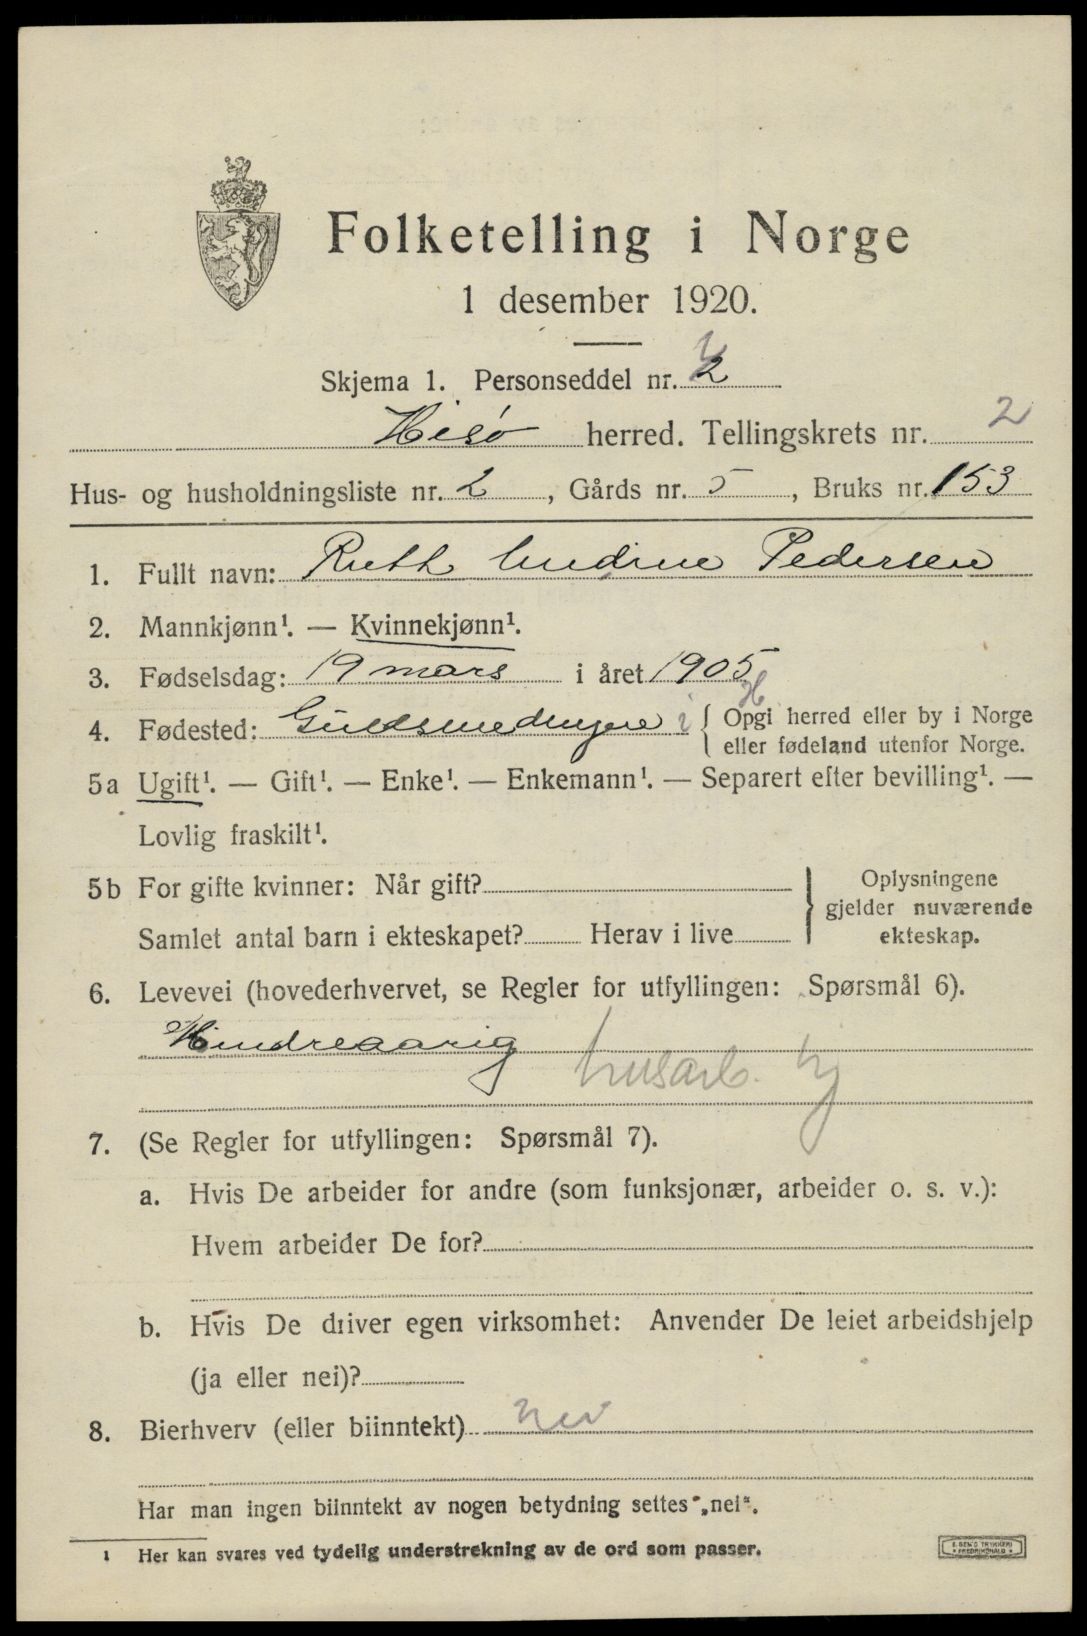 Folketelling i Norge
1 desember 1920.
Skjema 1. Personseddel nr. 2
Hisø herred. Tellingskrets nr. 2
Hus- og husholdningsliste nr. 2, Gårds nr. 5, Bruks nr. 153
1. Fullt navn: Ruth Pedersen
2. Mannkjønn¹. — Kvinnekjønn¹.
3. Fødselsdag: 19 mars i året 1905
4. Fødested: Guldsmedengene i H { Opgi herred eller by i Norge
eller fødeland utenfor Norge.
5a Ugift¹. — Gift¹. — Enke¹. — Enkemann¹. — Separert efter bevilling¹. —
Lovlig fraskilt¹.
5b For gifte kvinner: Når gift?
Samlet antal barn i ekteskapet? Herav i live
} Oplysningene
gjelder nuværende
ekteskap.
6. Levevei (hovederhvervet, se Regler for utfyllingen: Spørsmål 6).
husarb. hj
7. (Se Regler for utfyllingen: Spørsmål 7).
a. Hvis De arbeider for andre (som funksjonær, arbeider o. s. v.):
Hvem arbeider De for?
b. Hvis De driver egen virksomhet: Anvender De leiet arbeidshjelp
(ja eller nei)?
8. Bierhverv (eller biinntekt) nei
Har man ingen biinntekt av nogen betydning settes „nei“.
¹ Her kan svares ved tydelig understrekning av de ord som passer.